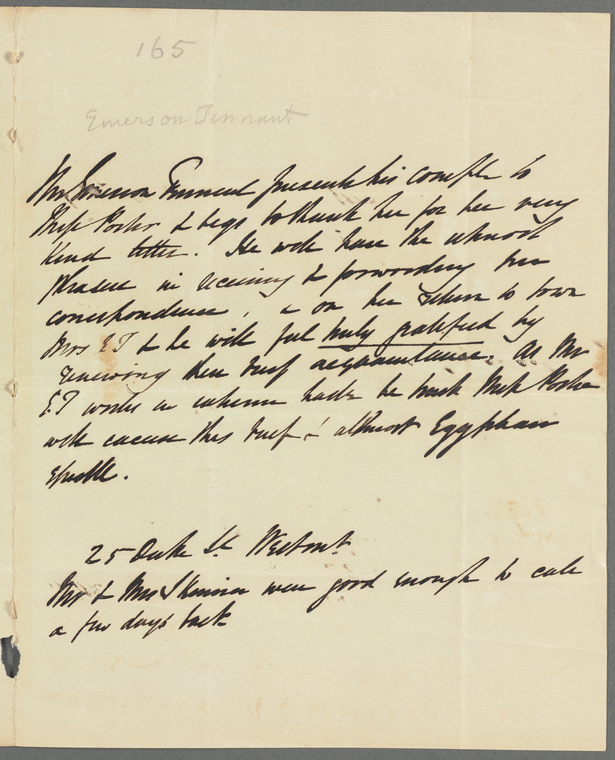 165
Emerson Tennant
Mr Emerson Tennent presents his compts to
Miss Porter & begs to thank her for her very
kind letter. He will have the utmost
pleasure in receiving & forwarding her
correspondence, & on her return to town
Mrs E T & he will feel truly gratified by
renewing their brief acquaintance. As Mr
E.T writes in extreme haste he trusts Miss Porter
will excuse this brief & almost Egyptian
epistle.
25 Duke St Westmr
Mr & Mrs Skinner were good enough to call
a few days back